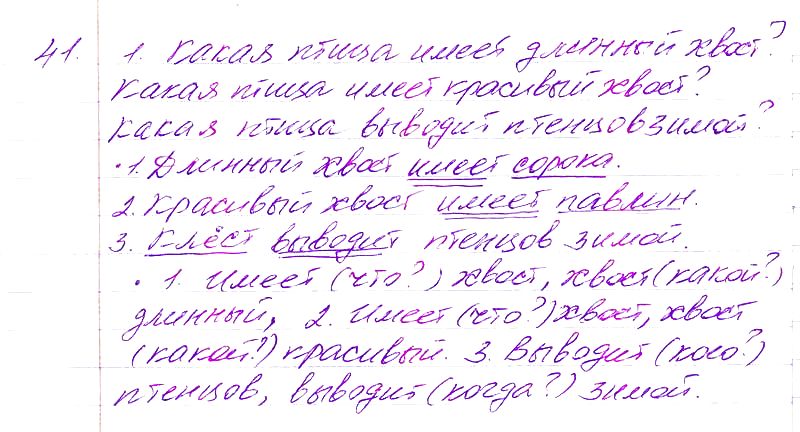 41. 1. Какая птица имеет длинный хвост?
Какая птица имеет красивый хвост?
Какая птица выводит птенцов зимой?
• 1. Длинный хвост имеет сорока.
2. Красивый хвост имеет павлин.
3. Клёст выводит птенцов зимой.
• 1. Имеет (что?) хвост, хвост (какой?)
длинный, 2. Имеет (что?) хвост, хвост
(какой?) красивый. 3. Выводит (кого?)
птенцов, выводит (когда?) зимой.